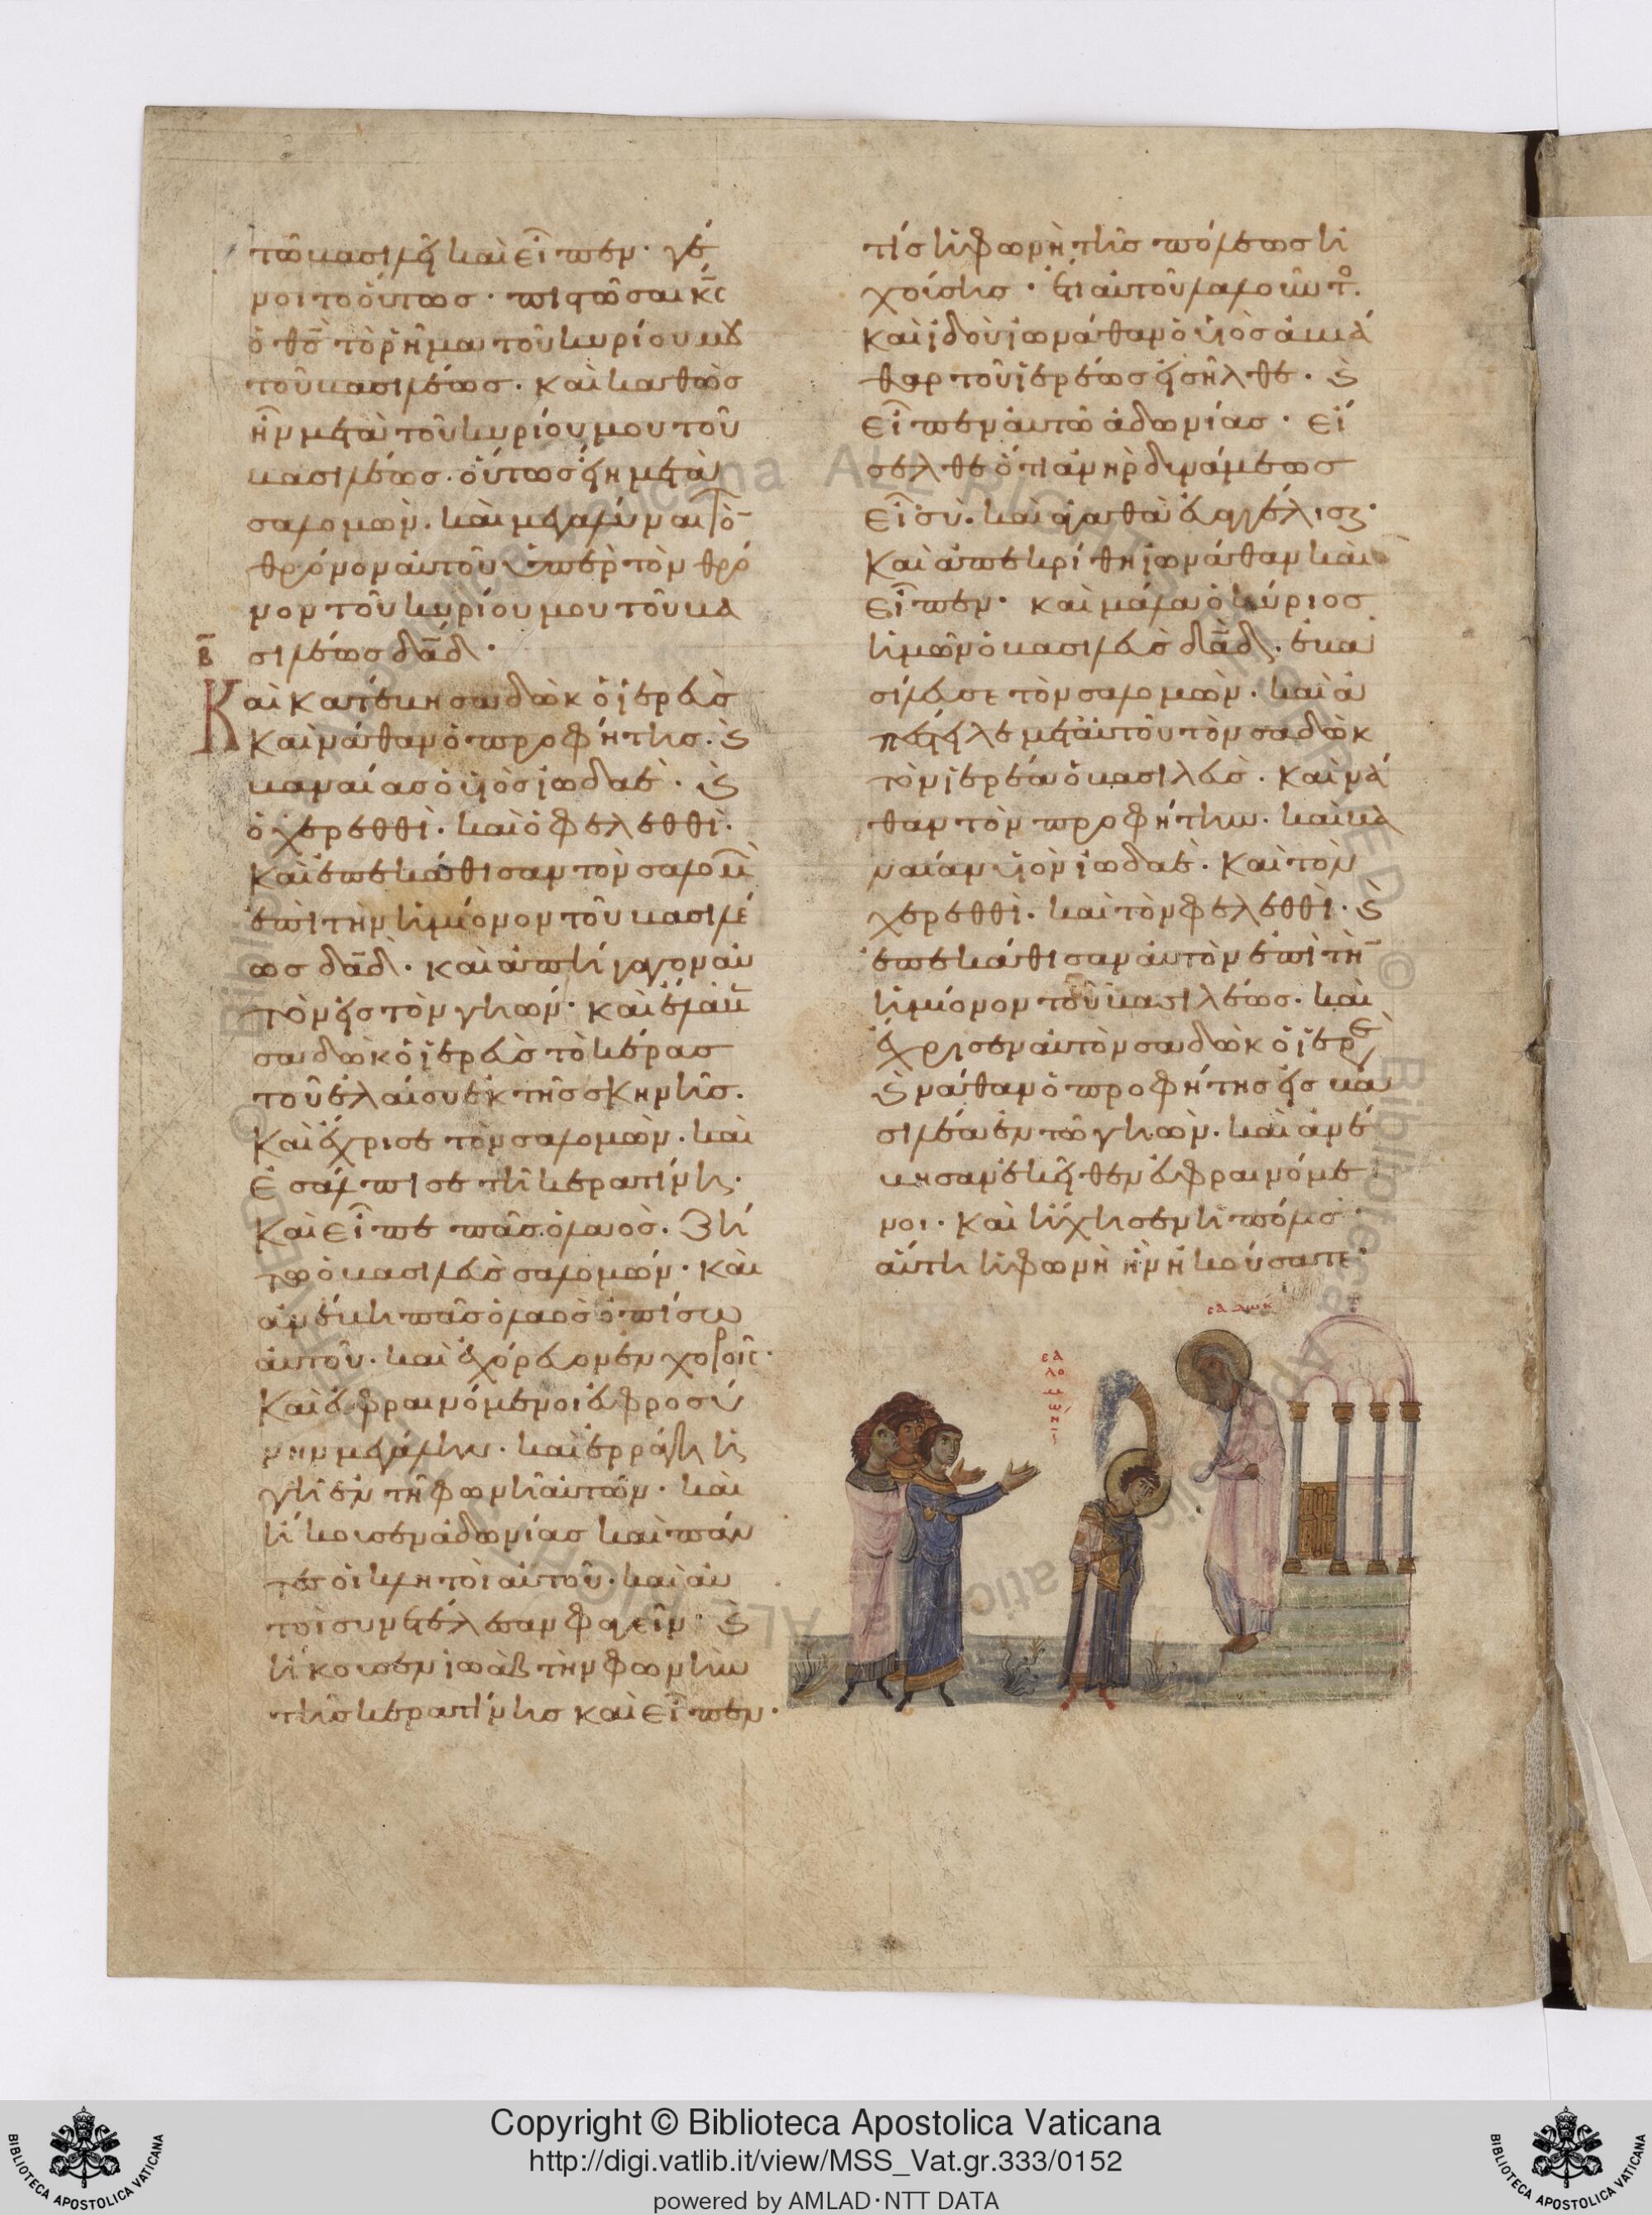 τῶ βασιλεῖ καὶ εἶπεν· γέ
νοιτο ὅυτωσ· πιστῶσαι κ̅ς
ὁ θ̅ς τὸ ῥῆμα τοῦ κυρίου μου
τοῦ βασιλέωσ. καὶ καθὼσ
ἦν μετὰ τοῦ κυρίου μου τοῦ
βασιλέωσ. ὅυτωσ ἔιη μετὰ
σαλομών. καὶ μεγαλύναι τὸ̅
θρόνον ἀυτοῦ ὑπὲρ τὸν θρό
νον τοῦ κυρίου μου τοῦ βα
σιλέωσ δα̅δ·
β̅
Καὶ κατέβη σαδὼκ ὁ ἱερεὺσ
καὶ νάθαν ὁ προφήτησ. ϗ
βαναίασ ὁ υἱὸσ ἰωδαέ. ϗ
ὁ χερεθθὶ. καὶ ὁ φελεθθὶ.
καὶ ἐπεκάθισαν τὸν σαλομῶ̅
ἐπὶ τὴν ἡμίονον τοῦ βασιλέ
ωσ δα̅δ. καὶ ἀπήγαγον ἀυ
τὸν εἰσ τὸν γηών· καὶ ἔλαβε̅
σαδὼκ ὁ ἱερεὺσ τὸ κέρασ
τοῦ ἐλαίου ἐκ τῆσ σκηνῆσ.
καὶ ἔχρισε τὸν σαλομών. καὶ
ἐσάλπισε τῆ κερατίνη·
καὶ εἶπε πᾶσ ὁ λαὸσ. Ζή
τω ὁ βασιλεὺσ σαλομών· καὶ
ἀνέβη πᾶσ ὁ λαὸσ ὀπίσω
ἀυτοῦ. καὶ ἐχόρευον ἐν χοροῖς·
καὶ ἐυφραινόμενοι ἐυφροσύ
νην μεγάλην. καὶ ἐρράγη ἡ
γῆ ἐν τῆ φωνῆ ἀυτῶν. καὶ
ἤκουσεν ἀδωνίασ καὶ πάν
τεσ οἱ κλητοὶ ἀυτοῦ. καὶ ἀυ
τοὶ συνετέλεσαν φαγεῖν· ϗ
ἤκουσεν ἰωὰβ τὴν φωνὴν
τῆσ κερατίνησ καὶ εἶπεν·
τίσ ἡ φωνὴ τῆσ πόλεωσ ἠ
χούσησ· ἔτι ἀυτοῦ λαλοῦντο.
καὶ ἰδοὺ ἰωνάθαν ὁ υἱὸσ ἀβιά
θαρ τοῦ ἱερέωσ εἰσῆλθε. ϗ
εἶπεν ἀυτῶ ἀδωνίασ· εἴ
σελθε ὅτι ἀνὴρ δυνάμεωσ
εἶ σὺ. καὶ ἀγαθὰ ἐυαγγέλισαι·
καὶ ἀπεκρίθη ἰωνάθαν καὶ
εἶπεν· καὶ μάλα ὁ κύριοσ
ἡμῶν ὁ βασιλεὺσ δα̅δ. ἐβα
σίλευσε τὸν σαλομών. καὶ ἀ
πέστειλε μετ ἀυτοῦ τὸν σαδὼκ
τὸν ἱερέα ὁ βασιλεὺσ. καὶ νά
θαν τὸν προφήτην. καὶ βα
ναίαν υἱὸν ἰωδαέ. καὶ τὸν
χερεθθὶ. καὶ τὸν φελεθθὶ. ϗ
ἐπεκάθισαν ἀυτὸν ἐπὶ τὴ̅
ἡμίονον τοῦ βασιλέωσ. καὶ
ἔχρισεν ἀυτὸν σαδὼκ ὁ ἱερεὺ
ϗ νάθαν ὁ προφήτησ εἰσ βα
σιλέα ἐν τῶ γηών. καὶ ἀνέ
βησαν ἐκεῖθεν ἐυφραινόμε
νοι. καὶ ἤχησεν ἡ πόλισ·
ἅυτη ἡ φωνὴ ἣν ἠκούσατε·
σαδωκ
σα
λο
μ
ων
Copyright © Biblioteca Apostolica Vaticana
http://digi.vatlib.it/view/MSS_Vat.gr.333/0152
powered by AMLAD·NTT DATA
BIBLIOTECA APOSTOLICA VATICANA
BIBLIOTECA APOSTOLICA VATICANA